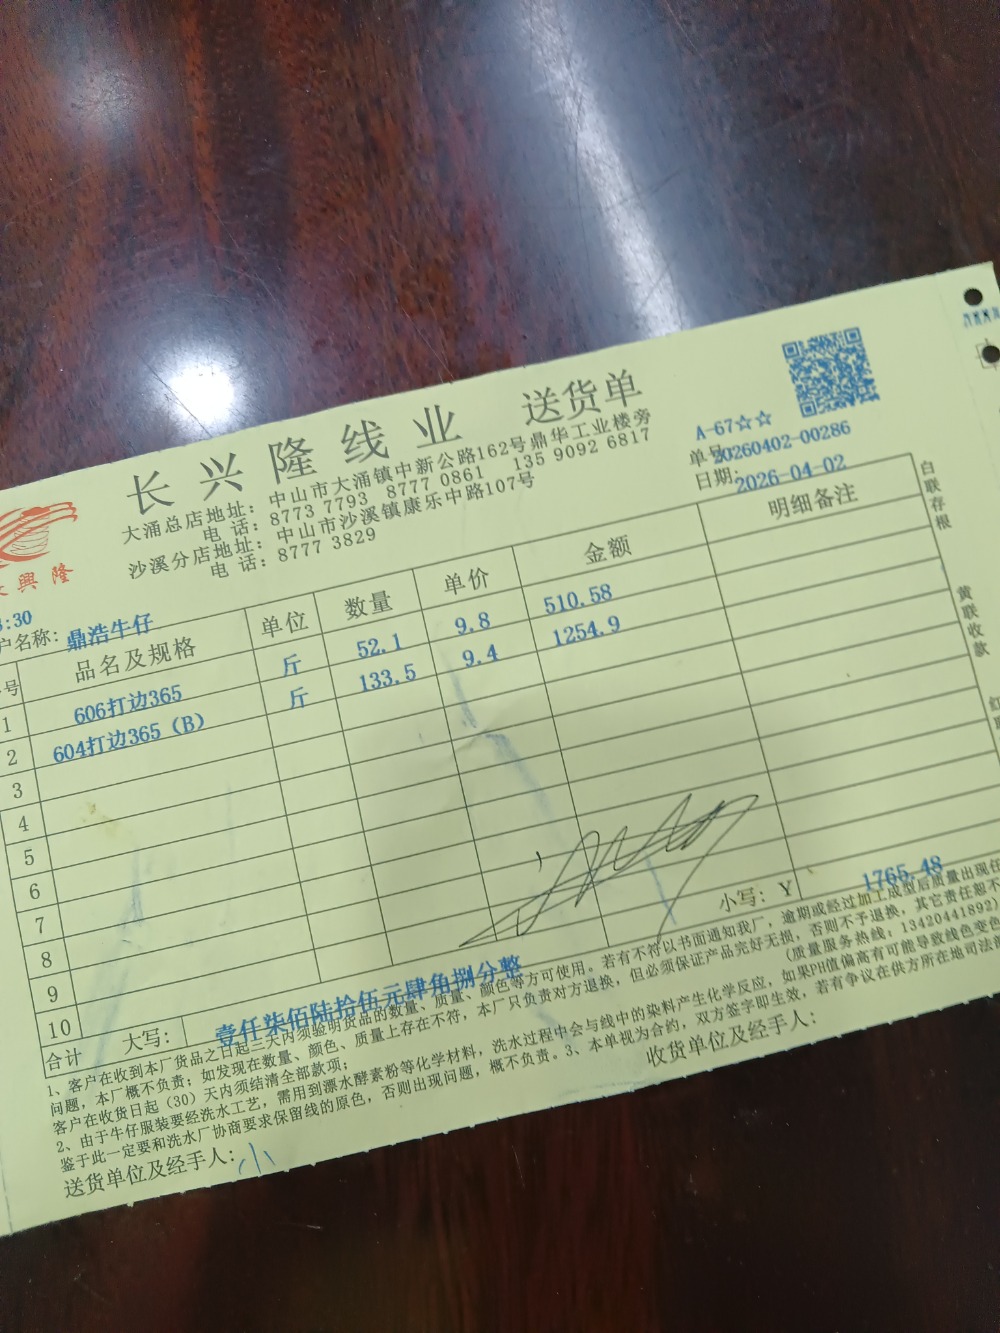 长兴隆线业 送货单
大涌总店地址：中山市大涌镇中新公路162号鼎华工业楼旁
电 话：8773 7793 8777 0861 135 9092 6817
沙溪分店地址：中山市沙溪镇康乐中路107号
电 话：8777 3829
A-67☆☆
单号：20260402-00286
日期：2026-04-02
興隆
:30
户名称：鼎浩牛仔
号 品名及规格 单位 数量 单价 金额 明细备注
1 606打边365 斤 52.1 9.8 510.58
2 604打边365（B） 斤 133.5 9.4 1254.9
3
4
5
6
7
8
9
10
合计 大写：壹仟柒佰陆拾伍元肆角捌分整 小写：Y 1765.48
1、客户在收到本厂货品之日起三天内须验明货品的数量、质量、颜色等方可使用。若有不符以书面通知我厂，逾期或经过加工成型后质量出现任
问题，本厂概不负责；如发现在数量、颜色、质量上存在不符，本厂只负责对方退换，但必须保证产品完好无损，否则不予退换，其它责任恕不
客户在收货日起（30）天内须结清全部款项；（质量服务热线：13420441892）
2、由于牛仔服装要经洗水工艺，需用到漂水酵素粉等化学材料，洗水过程中会与线中的染料产生化学反应，如果PH值偏高有可能导致线色变色
鉴于此一定要和洗水厂协商要求保留线的原色，否则出现问题，概不负责。3、本单视为合约，双方签字即生效，若有争议在供方所在地司法
送货单位及经手人：
收货单位及经手人：
白联存根
黄联收款